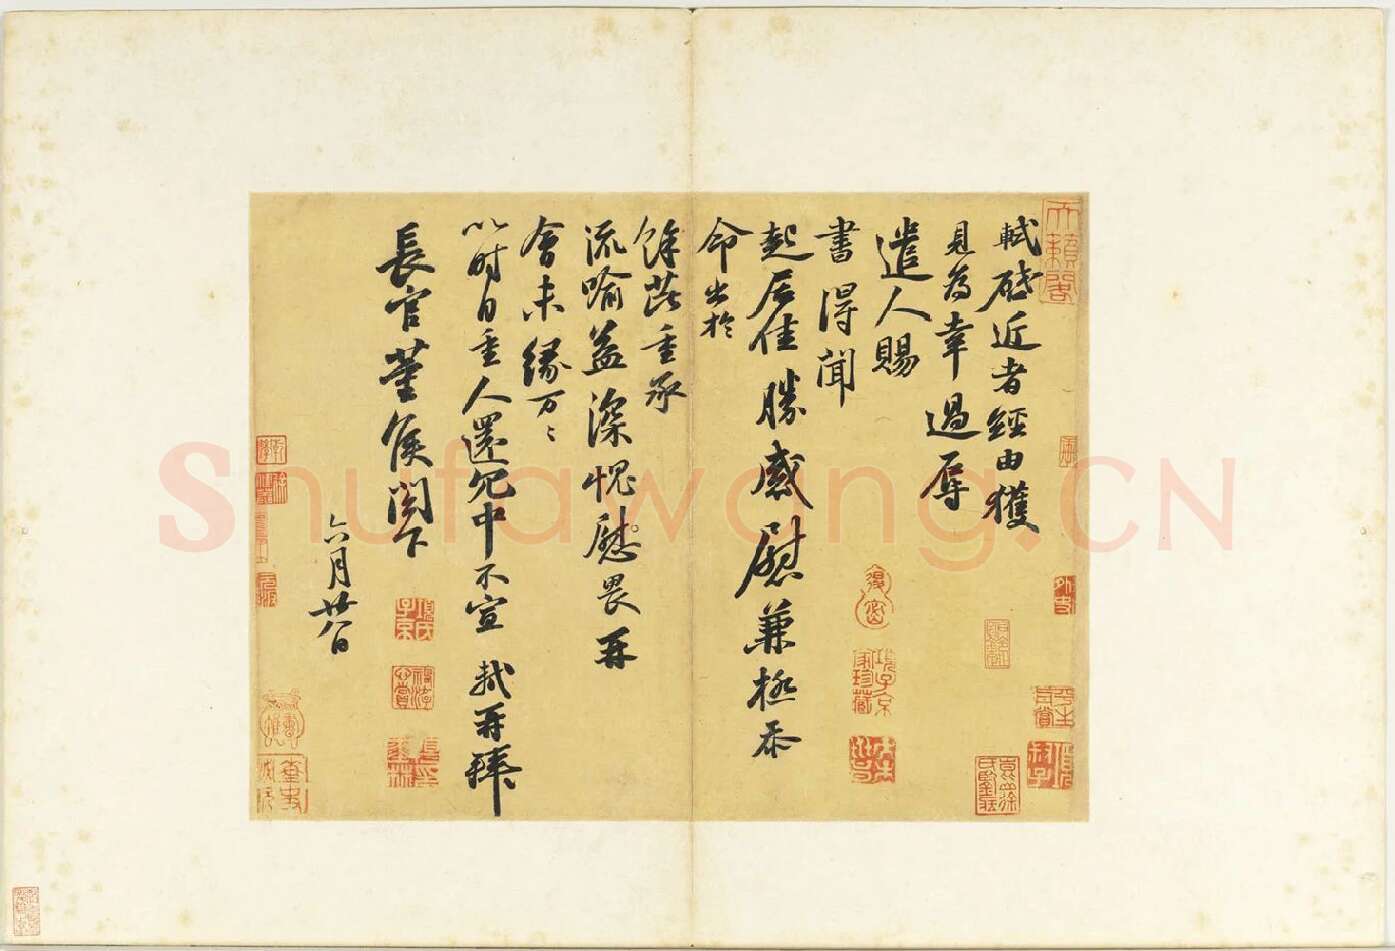 軾啓近者經由獲
見為幸過辱
遣人賜
書得聞
起居佳勝感慰兼極忝
命出於
餘芘重承
流喻益深愧慰畏再
會未緣萬萬
以時自重人還冗中不宣 軾再拜
長官董侯閣下
六月廿八日
天籟閣
項子京家珍藏
Shufawang.CN